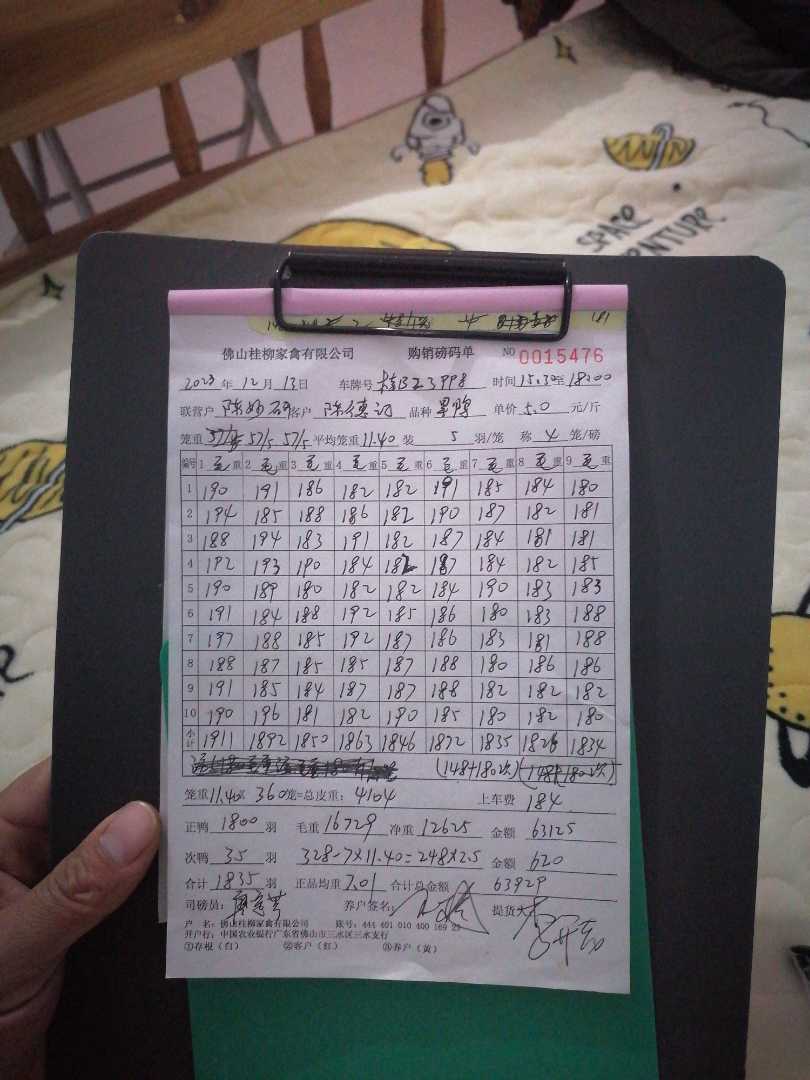 SPACE
佛山桂柳家禽有限公司 购销磅码单 NO 0015476
2023 年 12 月 13 日 车牌号 桂BZ3998 时间 15:30至18:00
联营户 客户 陈德 品种 单价 5.0 元/斤
笼重 57/5 57/5 57/5 平均笼重 11.40 装 5 羽/笼 称 4 笼/磅
编号 1 毛重 2 毛重 3 毛重 4 毛重 5 毛重 6 毛重 7 毛重 8 毛重 9 毛重
1 190 191 186 182 182 191 185 184 180
2 194 185 188 186 182 190 187 182 181
3 188 194 183 191 182 187 184 181 181
4 192 193 190 184 182 187 184 182 185
5 190 189 180 182 182 184 190 183 183
6 191 184 188 192 185 186 180 183 188
7 197 188 185 192 187 186 183 181 188
8 188 187 185 185 187 188 180 186 186
9 191 185 184 187 187 188 182 182 182
10 190 196 181 182 190 185 180 182 180
小计 1911 1892 1850 1863 1846 1872 1835 1826 1834
(148+180次) (148+180次)
笼重 11.40 x 360 笼=总皮重: 4104 上车费 184
正鸭 1800 羽 毛重 16729 净重 12625 金额 63125
次鸭 35 羽 328-7×11.40=248×2.5 金额 620
合计 1835 羽 正品均重 7.01 合计总金额 63929
司磅员: 养户签名: 提货人
户 名: 佛山桂柳家禽有限公司 账号: 444 401 010 400 169 25
开户行: 中国农业银行广东省佛山市三水区三水支行
①存根(白) ②客户(红) ③养户(黄)